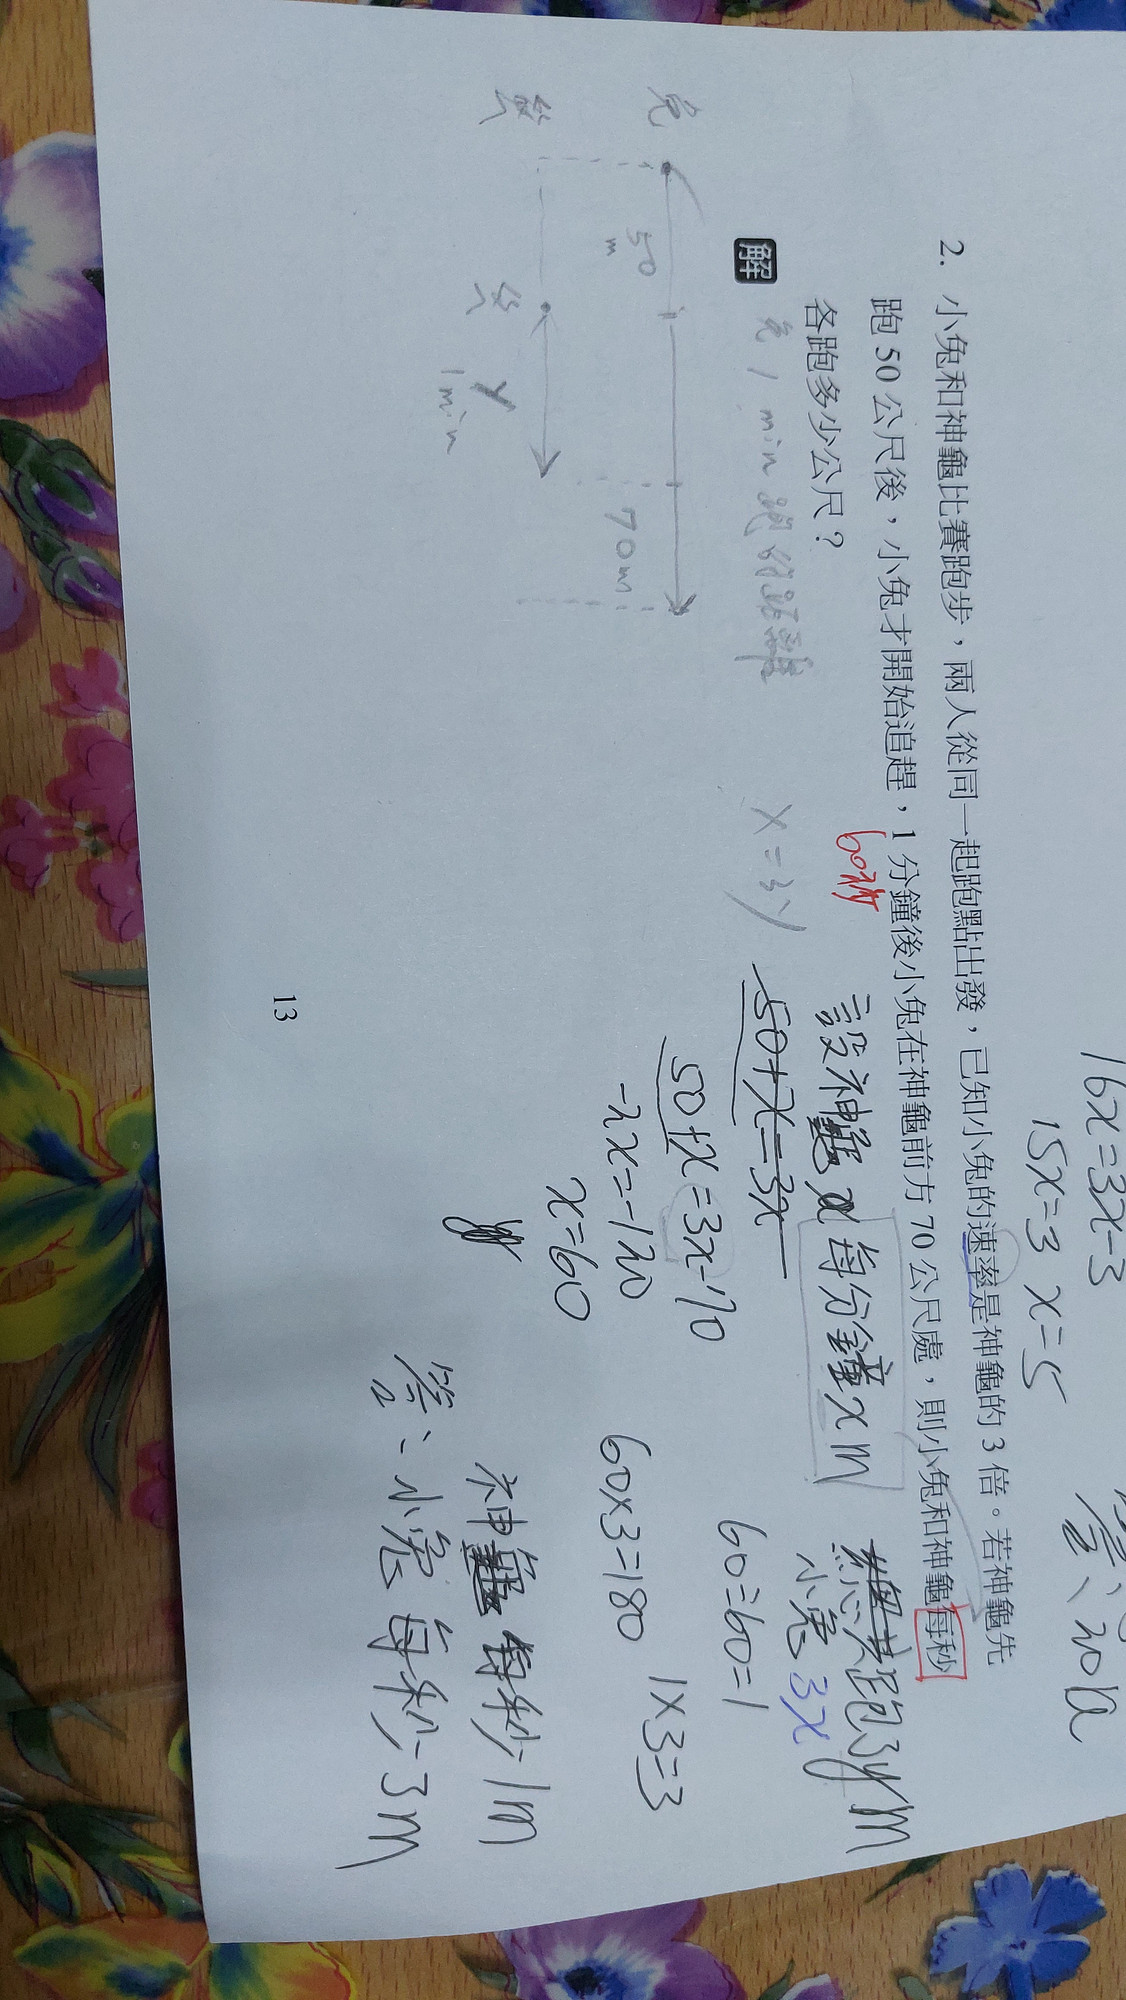 16x=3x-3
15x=3 x=5
2. 小兔和神龜比賽跑步，兩人從同一起跑點出發，已知小兔的速率是神龜的3倍。若神龜先
跑50公尺後，小兔才開始追趕，1分鐘後小兔在神龜前方70公尺處，則小兔和神龜每秒
各跑多少公尺？
60秒
解
兔1min跑的距離
x=3y
設神龜x每分鐘xm
跑3ym
小兔3x
50+x=3x
50+x=3x-70
-2x=-120
x=60
60÷60=1
60×3=180
1×3=3
神龜每秒1m
答：小兔每秒3m
兔
50
m
70m
y
1min
13